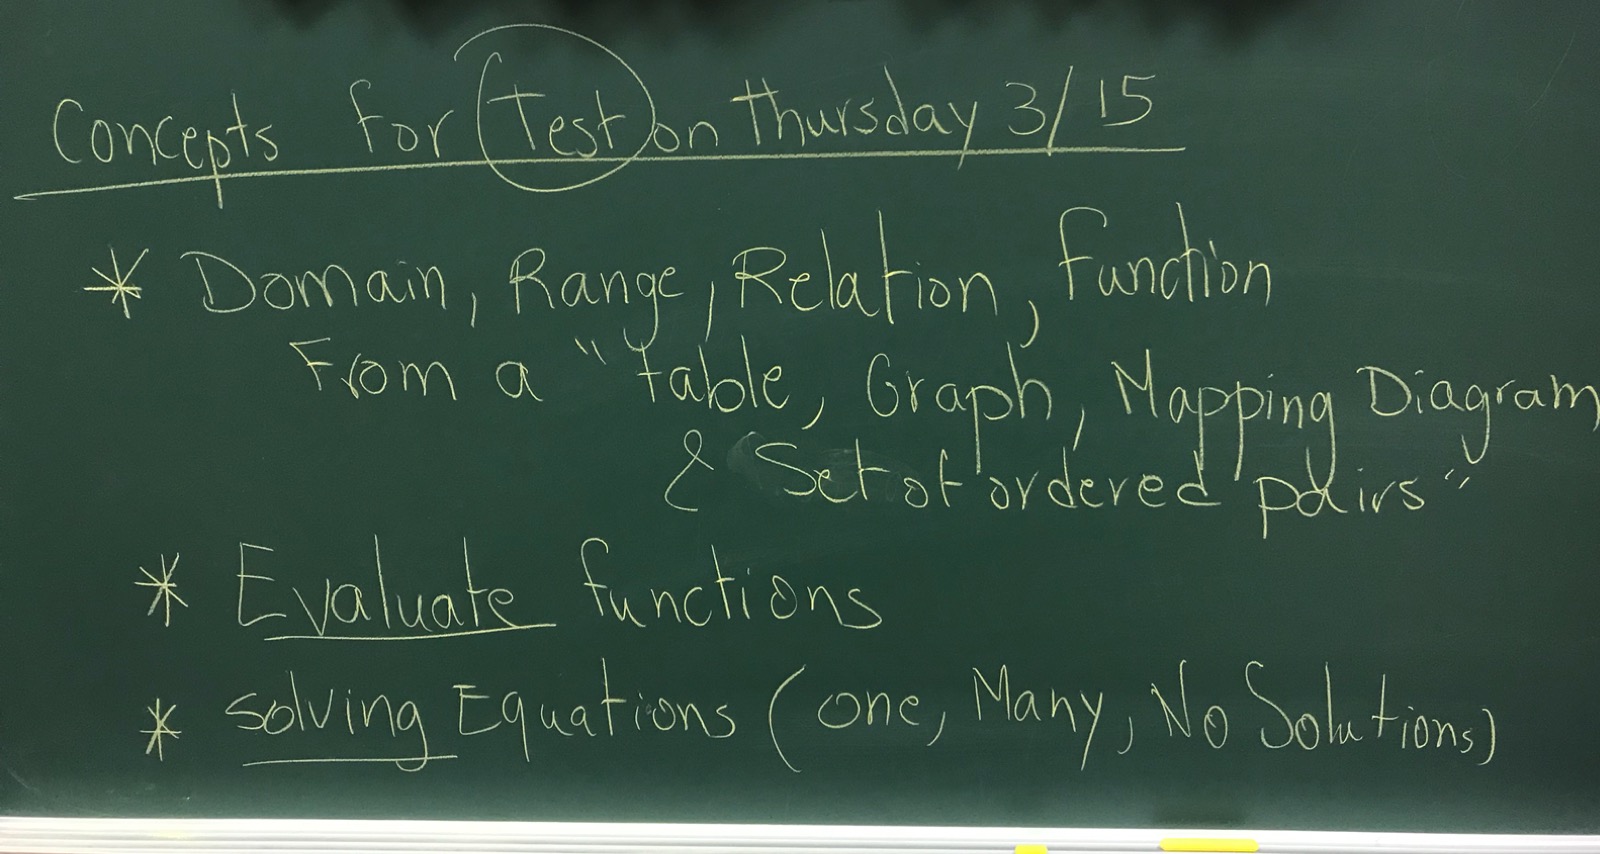 Concepts for Test on Thursday 3/15
* Domain, Range, Relation, function
From a "table, Graph, Mapping Diagram
& Set of ordered pairs"
* Evaluate functions
* Solving Equations (one, Many, No Solutions)